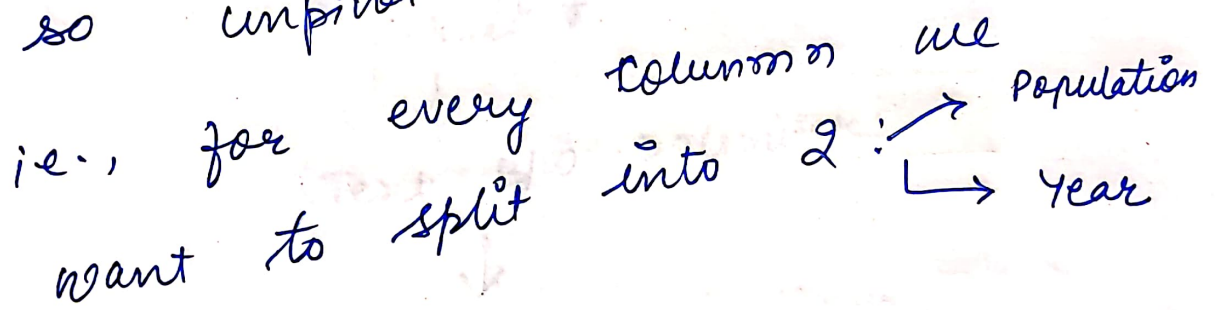 so
ie., for every column we
want to split into 2 : → Population
→ Year